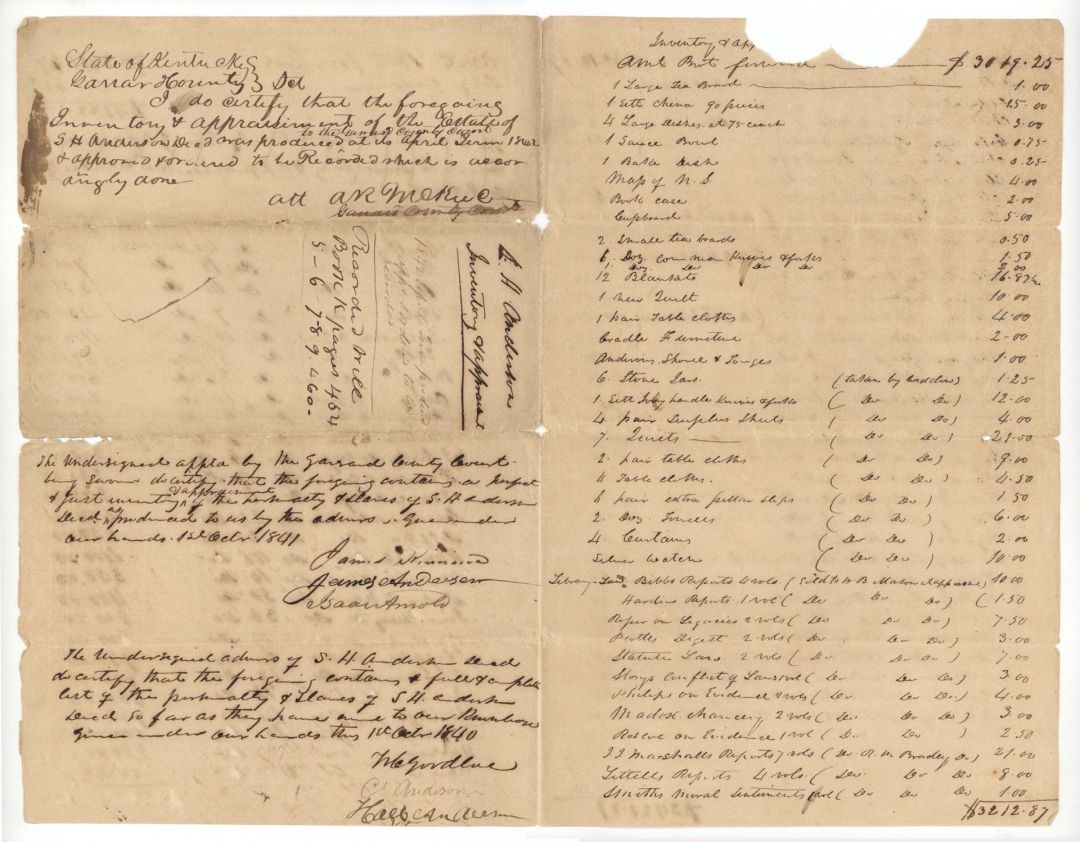 State of Kentucky
Garrard County } Sct
I do certify that the foregoing
Inventory & appraisment of the Estate of
to the Garrard County Court
S H Anderson Decd was produced at its April Term 1842
& approved & ordered to be Recorded which is accor
dingly done
att A R McKee
Garrard County Court
S. H Anderson
Inventory & appraisment
1842 April
Recorded Will
Book K pages 454
5-6-7-8 9. 460-
The undersigned appts by the Garrard County Court
being sworn do certify that the foregoing contains a perfect
& just inventory & appraisement of the personalty & slaves of S. H Anderson
Decd. as produced to us by the admrs. Given under
our hands. 1st Octr 1841
James
James Anderson
Isaac Arnold
The undersigned admrs of S. H Anderson Decd
do certify that the foregoing contains a full & complete
list of the personalty & slaves of S H Anderson
Decd so far as they have come to our
given under our hands this 1st Octr 1840
W C Goodloe
Anderson
Anderson
Inventory & ap
Amt Brot forward $3019.25
1 Large Tea Board 1.00
1 Sett China 90 pieces 15.00
4 Large Dishes at 75 each 3.00
1 Sauce Bowl 0.75
1 Bake Dish 0.25
Map of U.S 4.00
Book case 2.00
Cupboard 5.00
2. Small tea boards 0.50
6 Doz. Common Knives & forks 1.50
1. Doz. Do Do Do 2.00
12 Blankets 16.87½
1 New Quilt 10.00
1 pair Table cloths 4.00
Cradle Furniture 2.00
Andirons, Shovel & Tonges 1.00
6. Stone Jars. (taken by widow) 1.25
1. Sett Ivory handle Knives & forks ( Do Do ) 12.00
4. pair Surplus Sheets ( Do Do ) 4.00
7. Quilts ( Do Do ) 21.00
2. pair table cloths ( Do Do ) 9.00
4 Table cloths. ( Do Do ) 4.50
6 pair extra pillow slips ( Do Do ) 1.50
2. Doz. Towels ( Do Do ) 6.00
4. Curtains ( Do Do ) 2.00
Silver watch ( Do Do ) 10.00
Library Law Bibbs Reports 4 vols (Sold to W B Mason at appraise) 10.00
Hardins Reports. 1 vol ( Do Do Do ) 1.50
Roper on Legacies 2 vols ( Do Do Do ) 7.50
Digest 2 vols ( Do Do Do ) 3.00
Statute Law 2 vols ( Do Do Do ) 7.00
Storys Conflict of Laws 1 vol ( Do Do Do ) 3.00
Philips on Evidence 2 vols ( Do Do Do ) 4.00
Madox chancery 2 vols ( Do Do Do ) 3.00
Roscoe on Evidence 1 vol ( Do Do Do ) 2.50
J J Marshalls Reports 7 vols (Do R. M Bradley Do) 21.00
Littells Reports 4 vols. ( Do Do Do ) 8.00
Smiths Moral Sentiments 1 vol ( Do Do Do ) 1.00
$3212.87